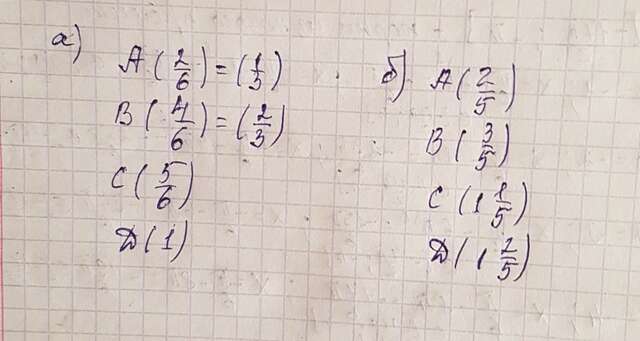 а)
A (2/6) = (1/3)
B (4/6) = (2/3)
C (5/6)
D (1)
б)
A (2/5)
B (3/5)
C (1 1/5)
D (1 2/5)